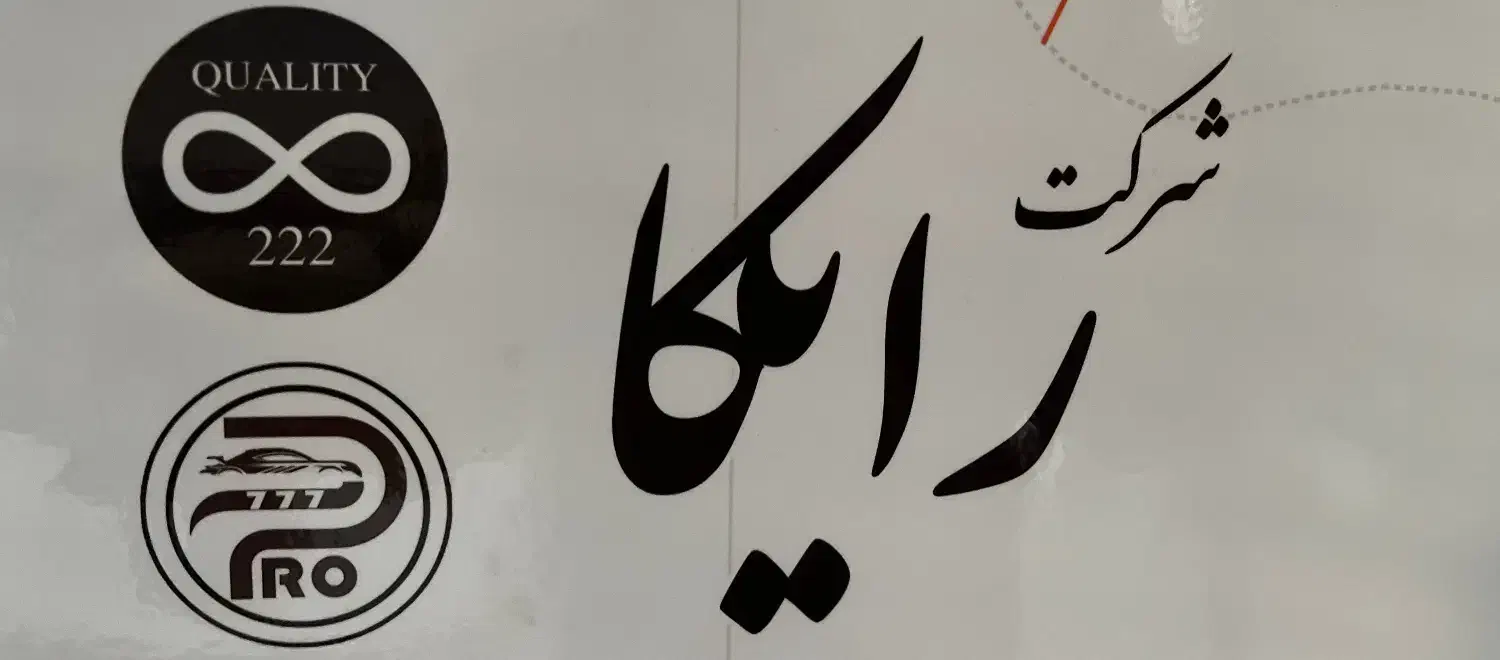 شرکت
رایکا
QUALITY
222
777
PRO